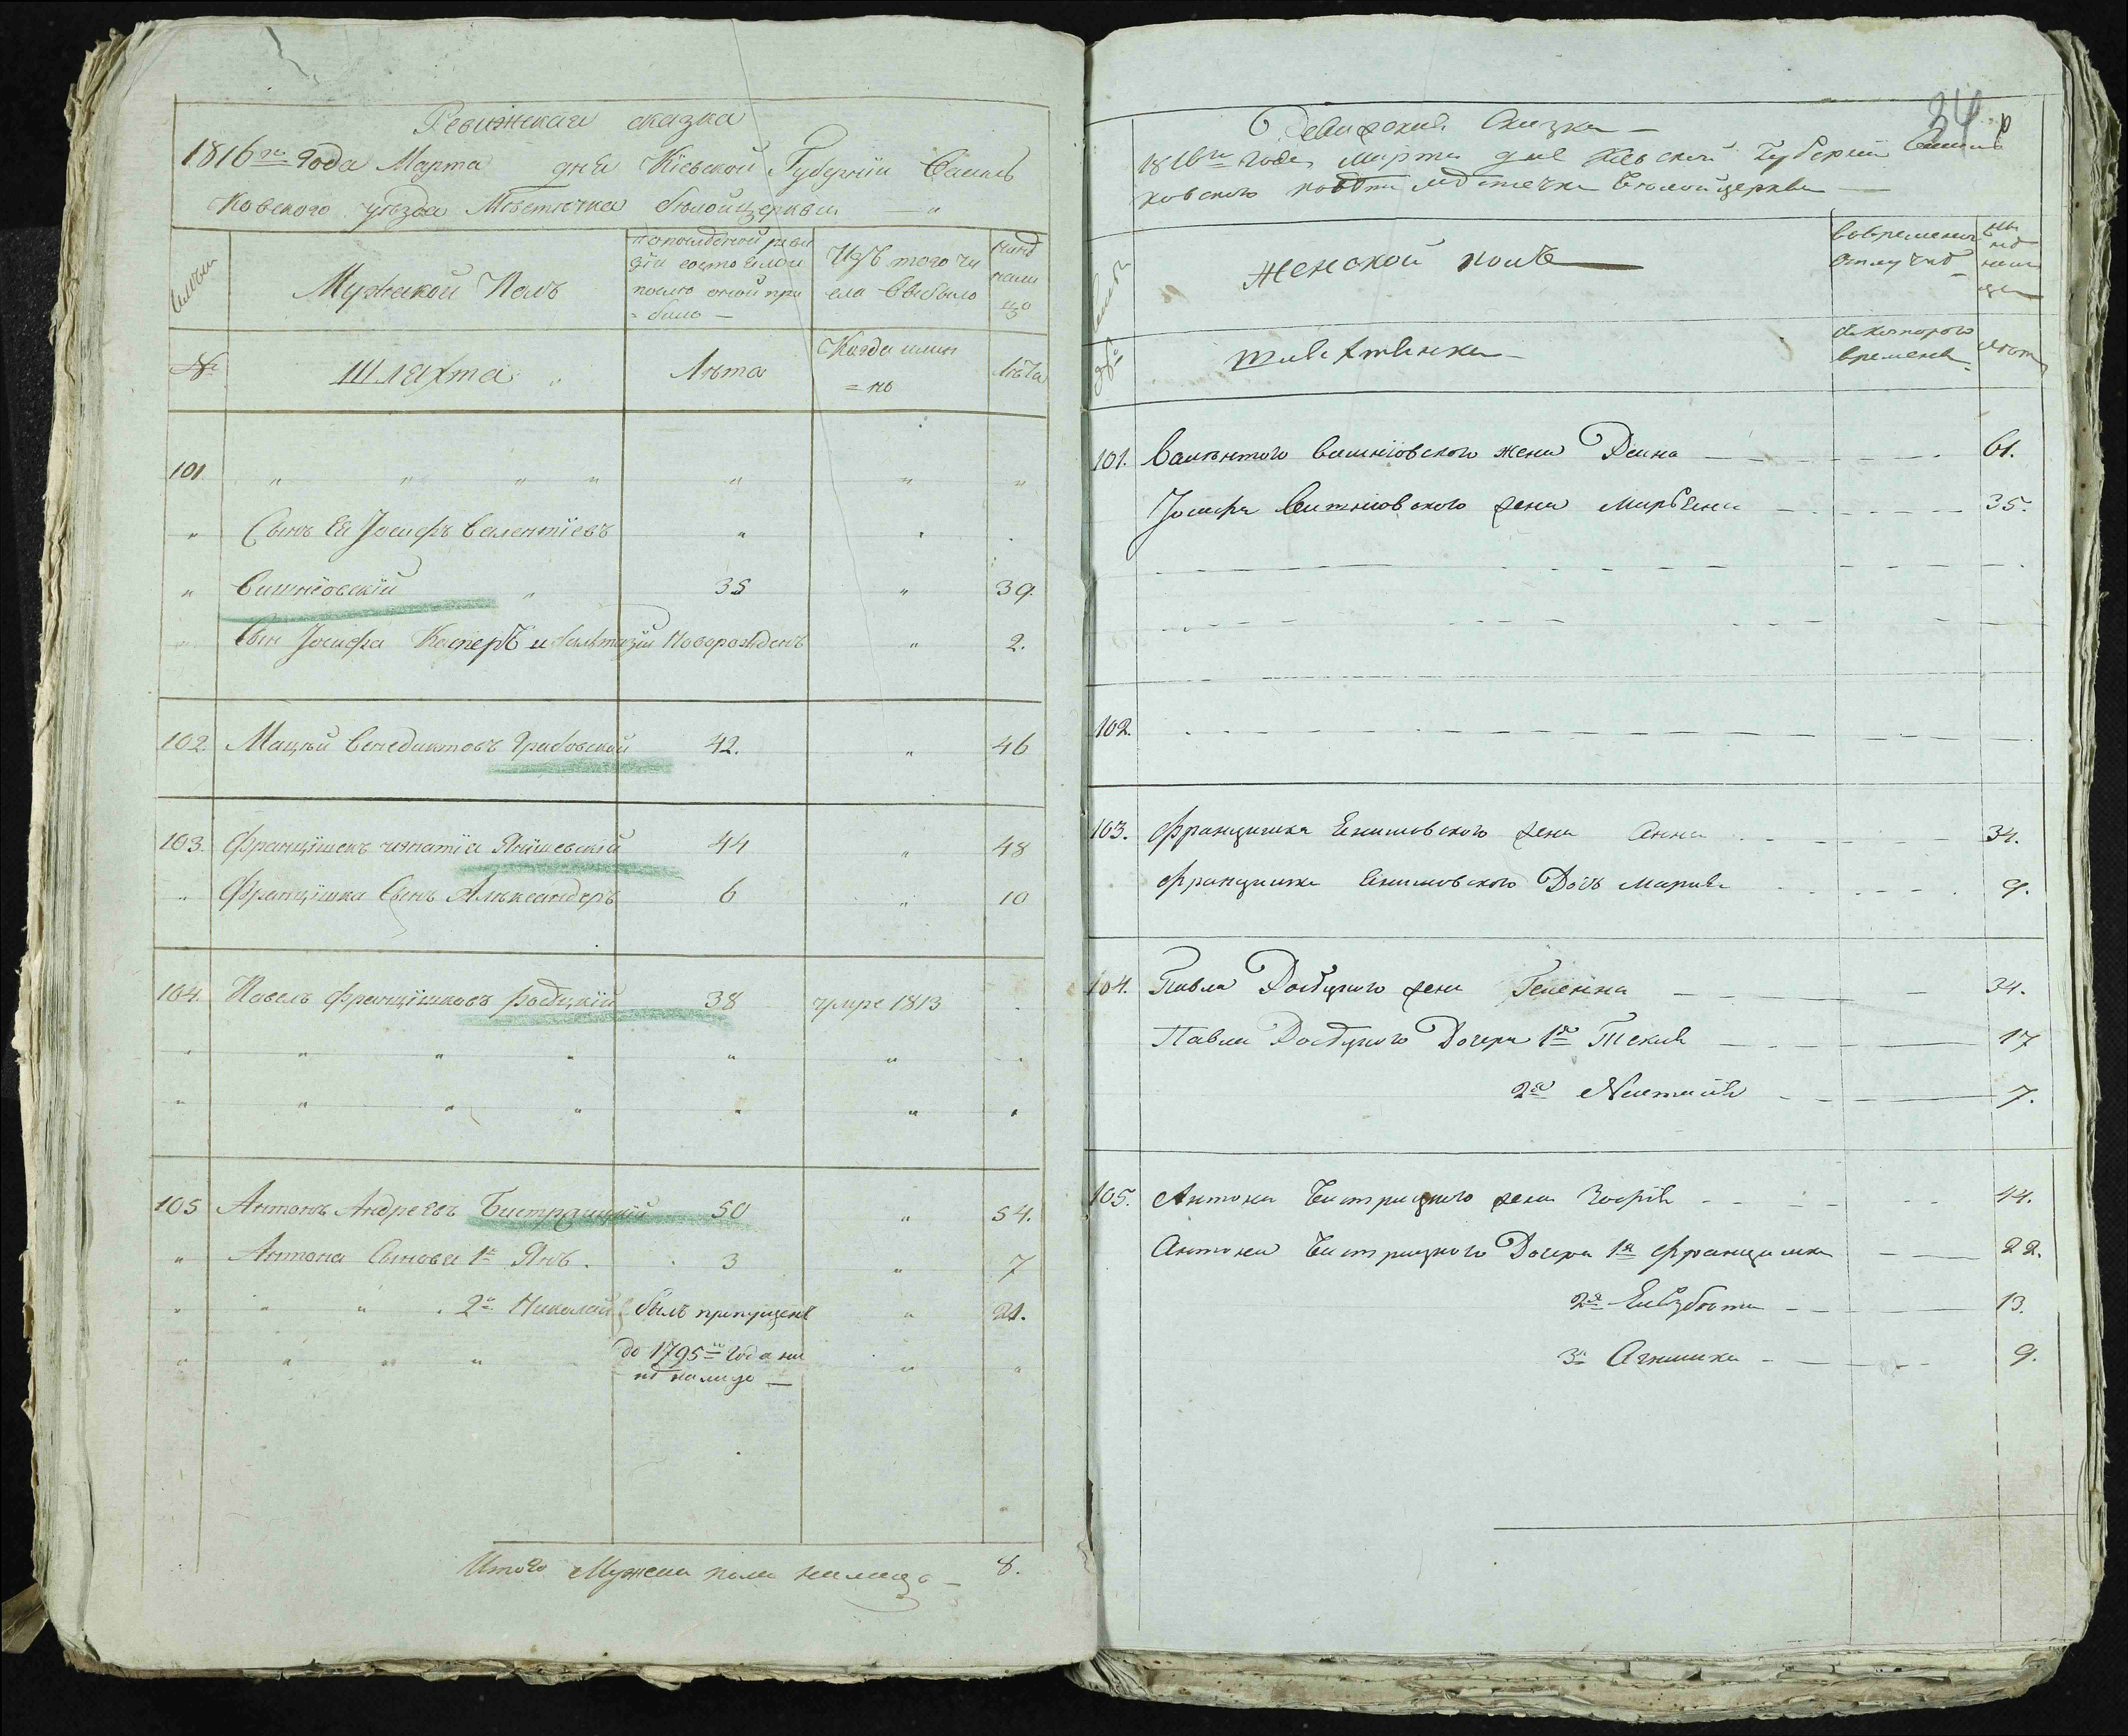 Ревижская сказка
1816го Года Марта дня Кіевской Губерніи Василь
ковского уѣзда Мѣстечка бѣлойцеркви — „
Семьи
Мужеской Полъ
попоследной реви
зіи состоялои
послѣ оной при
= было —
Изъ того чи
сла выбыло
нынѣ
нали
цо
№
Шляхта „
Лѣта
Когда имян
= но
Лѣта
101 „ „ „ „ „ „ „
„ Сынъ Ея Іосифъ Валентіевъ „
„ Вишнiовскій „ 35 „ 39.
„ Сын Іосифа Касперъ и балтазій Новорожденъ „ 2.
102. Мацѣй Венедиктовъ Грабовской 42. „ 46
103. Францїшекъ игнатїя Янїшевскїй 44 „ 48
„ Францїшка Сынъ Александеръ 6 „ 10
104. Павелъ Францїшковъ Росецкїй 38 умре 1813
„ „ „ „ „ „ „
„ „ „ „ „ „ „
105 Антонъ Андреевъ Бистрицкий 50 „ 54.
„ Антона Сыновя 1й Янъ . 3 „ 7
„ „ „ . 2й Николай былъ препущенъ „ 21.
„ „ „ „ до 1795го Года ны „ „
нѣ налицо —
Итого Мужеска пола налицо — 8.
34
Ревижская Сказка —
1816го года Марта дня Кіевской Губерніи Василь
ковского повѣта мѣстечка Бѣлойцеркви —
Семьи
Женской полъ
вовременной
отлучкѣ
ны
нѣ
нали
цо
№
шляхтянки —
скоторого
времени
лѣта
101. Валентого Вишніовского жена Доина — 61.
Іосифа Вишніовского жена Маріяна — 35.
102.
103. францишка Енишовского жена Анна — 34.
францишка Енишовского Дочъ Марияна — 9.
104. Павла Росецкого жена Геленна — 34.
Павла Росецкого Дочери 1я Текля — 17
2я Настасія — 7.
105. Антона Бистрицкого жена Зофія — 44.
Антона Бистрицкого Дочери 1я францишка — 22.
2я Елизбета — 13.
3я Агнишка — 9.